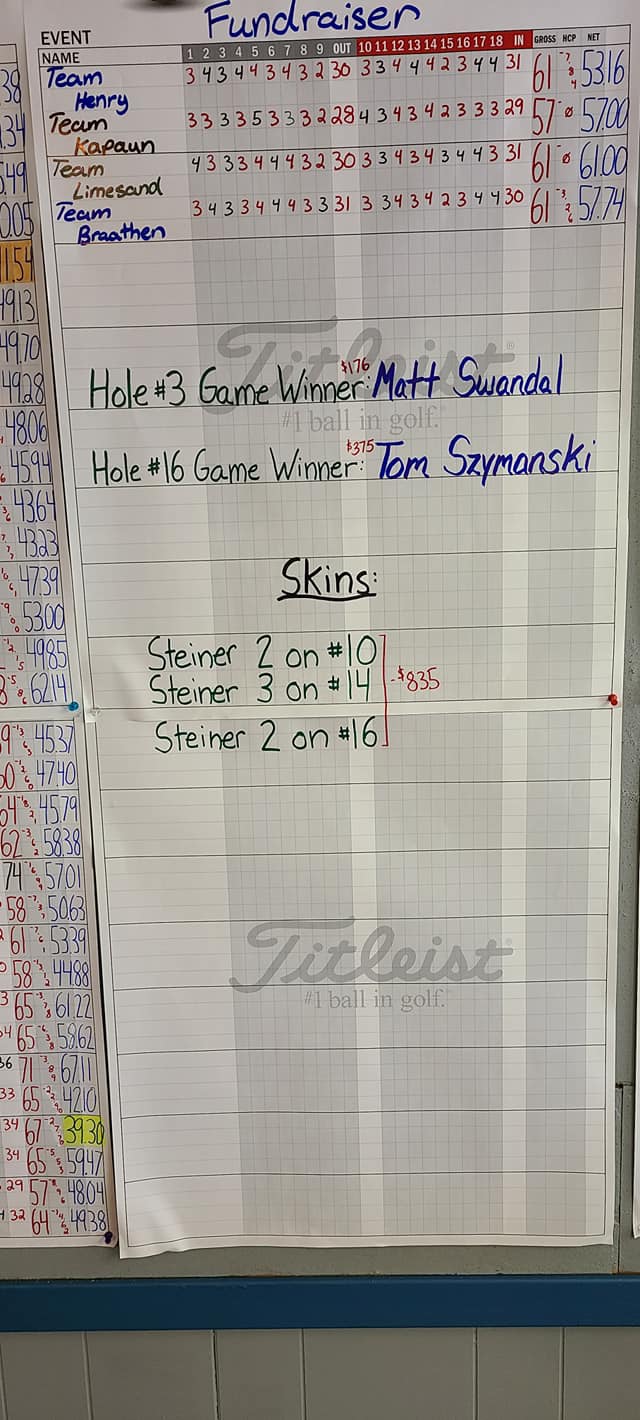 Fundraiser
EVENT
NAME 1 2 3 4 5 6 7 8 9 OUT 10 11 12 13 14 15 16 17 18 IN GROSS HCP NET
Team Henry 3 4 3 4 4 3 4 3 2 30 3 3 4 4 4 2 3 4 4 31 61 53.16
Team Kapaun 3 3 3 3 5 3 3 3 2 28 4 3 4 3 4 2 3 3 3 29 57 ø 57.00
Team Limesand 4 3 3 3 4 4 4 3 2 30 3 3 4 3 4 3 4 4 3 31 61 ø 61.00
Team Braathen 3 4 3 3 4 4 4 3 3 31 3 3 4 3 4 2 3 4 4 30 61 57.74
Titleist
#1 ball in golf.
$176
Hole #3 Game Winner: Matt Swandal
$375
Hole #16 Game Winner: Tom Szymanski
Skins:
Steiner 2 on #10
Steiner 3 on #14 - $835
Steiner 2 on #16
Titleist
#1 ball in golf.
49.13
49.70
49.28
48.06
45.94
43.64
43.23
47.39
53.00
49.85
62.14
45.37
47.40
45.79
62 58.38
74 57.01
58 50.63
61 53.39
58 44.88
65 61.22
65 58.62
71 67.11
33 65 42.10
34 67 39.30
34 65 59.47
29 57 48.04
32 64 49.38